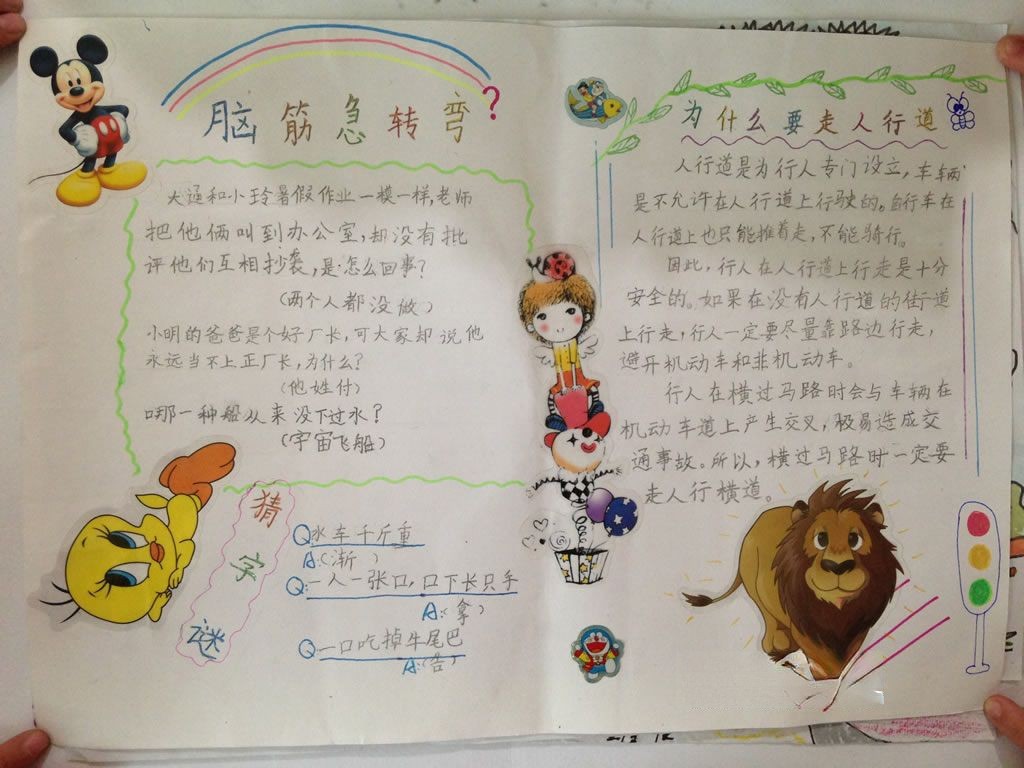 脑筋急转弯?
大通和小玲暑假作业一模一样,老师
把他俩叫到办公室,却没有批
评他们互相抄袭,是怎么回事?
(两个人都没做)
小明的爸爸是个好厂长,可大家却说他
永远当不上正厂长,为什么?
(他姓付)
哪一种船从来没下过水?
(宇宙飞船)
猜字谜
Q:水车千斤重
A:(渐)
Q:一人一张口,口下长只手
A:(拿)
Q:一口吃掉牛尾巴
A:(告)
为什么要走人行道
人行道是为行人专门设立,车辆
是不允许在人行道上行驶的。自行车在
人行道上也只能推着走,不能骑行。
因此,行人在人行道上行走是十分
安全的。如果在没有人行道的街道
上行走,行人一定要尽量靠路边行走,
避开机动车和非机动车。
行人在横过马路时会与车辆在
机动车道上产生交叉,极易造成交
通事故。所以,横过马路时一定要
走人行横道。